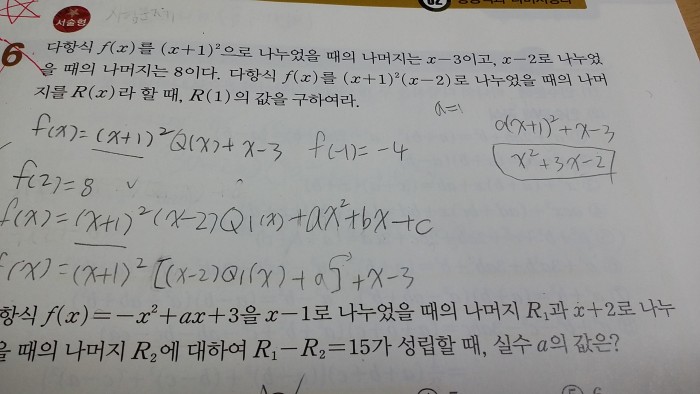 서술형
6 다항식 f(x)를 (x+1)²으로 나누었을 때의 나머지는 x-3이고, x-2로 나누었
을 때의 나머지는 8이다. 다항식 f(x)를 (x+1)²(x-2)로 나누었을 때의 나머
지를 R(x)라 할 때, R(1)의 값을 구하여라.
a=1
f(x)=(x+1)²Q(x)+x-3 f(-1)=-4
a(x+1)²+x-3
x²+3x-2
f(2)=8
f(x)=(x+1)²(x-2)Q₁(x)+ax²+bx+c
f(x)=(x+1)²[(x-2)Q₁(x)+a]+x-3
항식 f(x)=-x²+ax+3을 x-1로 나누었을 때의 나머지 R₁과 x+2로 나누
을 때의 나머지 R₂에 대하여 R₁-R₂=15가 성립할 때, 실수 a의 값은?